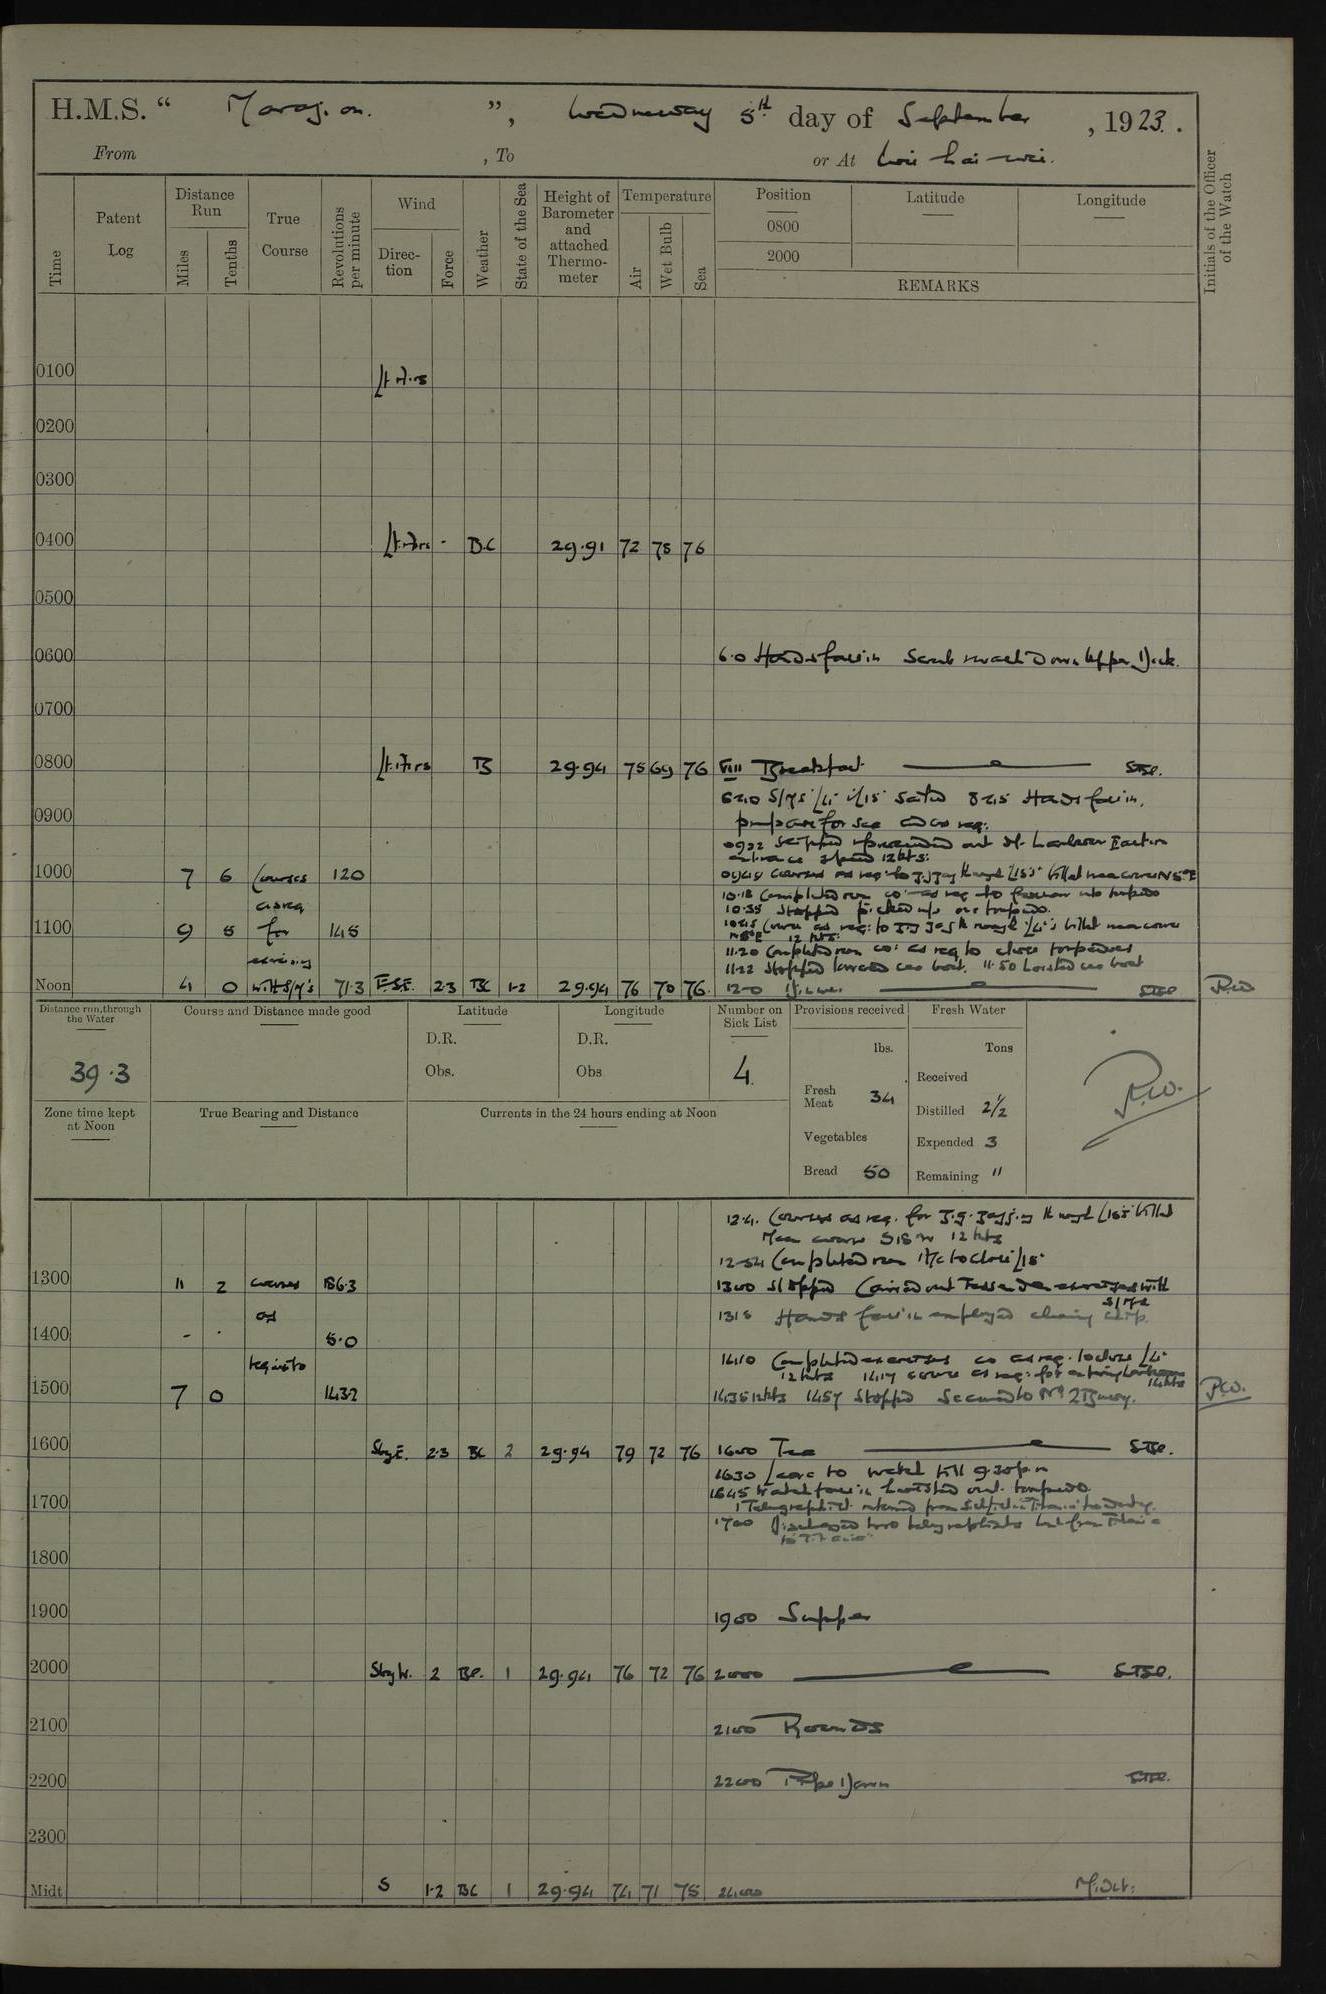 H.M.S. " Marazion ", Wednesday 5th day of September, 1923.
From , To or At Wei-hai-wei.
Time
Patent Log
Distance Run
Miles
Tenths
True Course
Revolutions per minute
Wind
Direction
Force
Weather
State of the Sea
Height of Barometer and attached Thermometer
Temperature
Air
Wet Bulb
Sea
Position
0800
2000
Latitude
Longitude
REMARKS
Initials of the Officer of the Watch
0100 Lt Airs
0200
0300
0400 Lt. Airs - B.C 29.91 72 75 76
0500
0600 6.0 Hands fall in Scrub & wash Down Upper Deck.
0700
0800 Lt. Airs B 29.94 75 69 76 VIII Breakfast
S/M's L5 L15 8.45 Hands fall in,
prepare for sea co as req:
0900 0922 Slipped & proceeded out of Harbour Eastern
entrance speed 12 kts:
1000 7 6 Courses 120 courses as req: to zig zag through L15's billet mean course
as req 10.18 Completed run co: as req to
10.35 Stopped picked up one torpedo.
1100 9 5 for 145 1045 Course as req: to zig zag through L5's billet mean course
12 kts:
exercising 11.20 Completed run co: as req to close torpedoes
11.22 Stopped lowered sea boat. 11.50 hoisted sea boat
Noon 4 0 with S/M's 71.3 E.S.E. 2.3 BC 1-2 29.94 76 70 76. 12-0 Dinner P.W
Distance run through the Water
39.3
Zone time kept at Noon
Course and Distance made good
True Bearing and Distance
Latitude
D.R.
Obs.
Longitude
D.R.
Obs
Currents in the 24 hours ending at Noon
Number on Sick List
4.
Provisions received
lbs.
Fresh Meat 34
Vegetables
Bread 50
Fresh Water
Tons
Received
Distilled 2½
Expended 3
Remaining "
P.W.
12.4. Courses as req. for zig-zagging through L15's billet
Mean course 12 kts
12-54 Completed run A/c to close L15
1300 11 2 courses 186.3 1300 Stopped Carried out Fessenden exercises with
S/M's
as 1315 Hands fall in employed cleaning ship.
1400 - . 5.0
requisite 1410 Completed exercises co as req. to close L5
12 kts 1417 course as req: for entering harbour
14 kts
1500 7 0 143.2 1435 12 kts 1457 Stopped Secured to No 2 Buoy. P.W.
1600 SbyE. 2.3 BC 2 29.94 79 72 76 1600 Tea
1630 Leave to watch till 9.30 p.m
1645 Watch fall in hoisted out torpedo.
1700 1 Telegraphist returned from
1700 Discharged two telegraphists lent from Titania
to Titania
1800
1900 1900 Supper
2000 SbyW. 2 BC. 1 29.94 76 72 76 2000
2100 2100 Rounds
2200 2200 Pipe Down
2300
Midt S 1-2 BC 1 29.94 74 71 75 2400